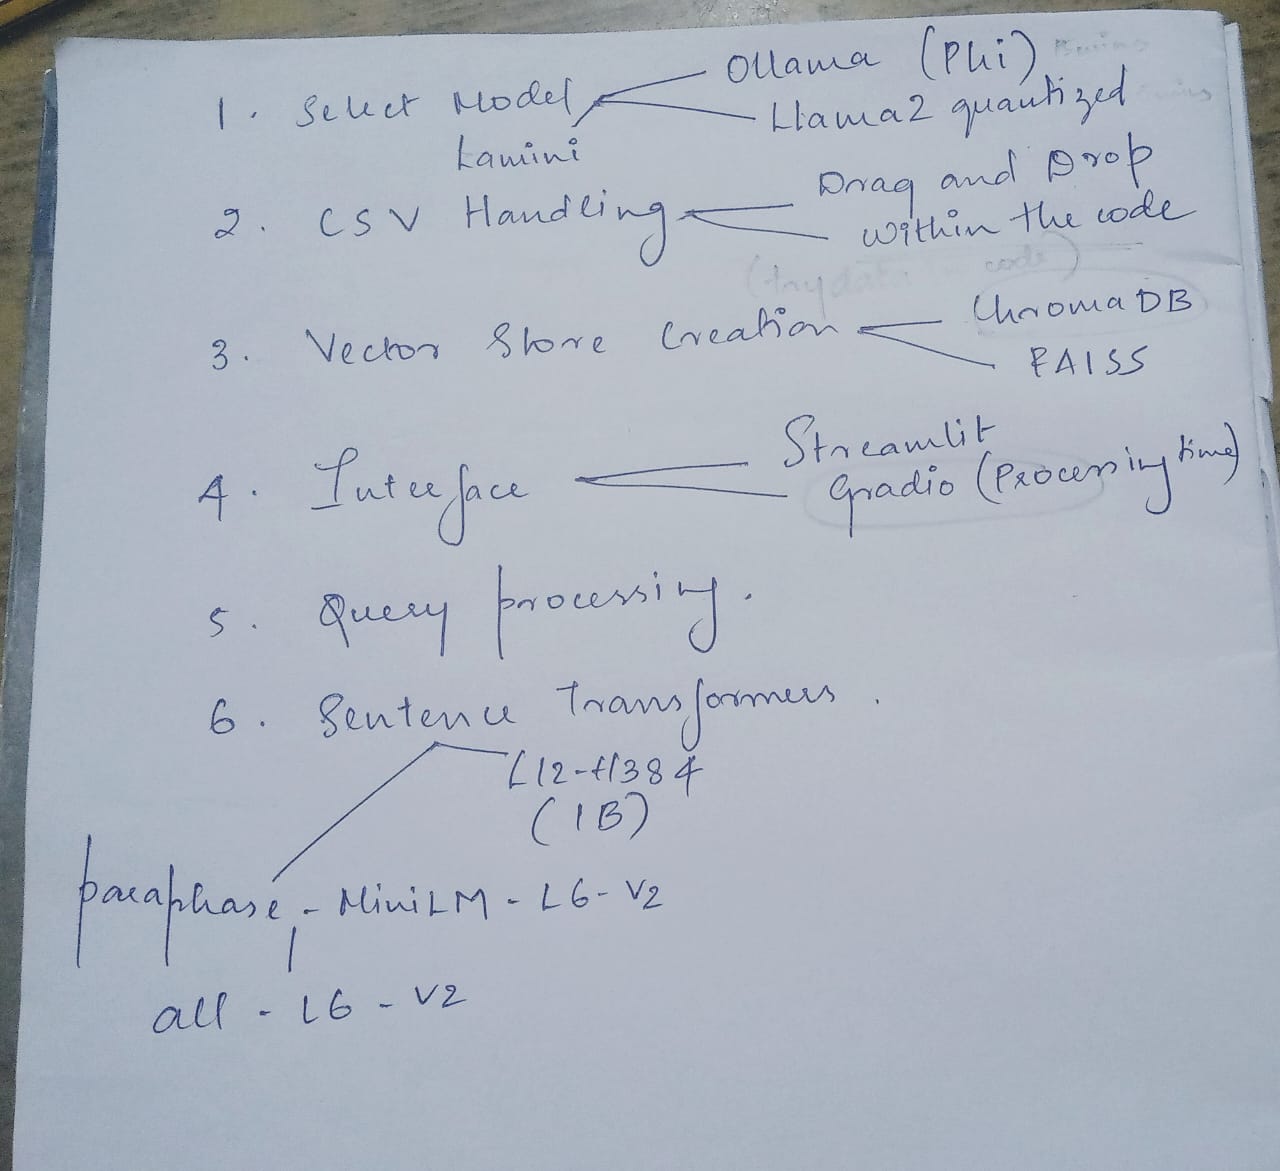 1. Select Model
Ollama (Phi)
Llama2 quantized
Lamini
2. CSV Handling
Drag and Drop
within the code
(try data in code)
3. Vector Store Creation
ChromaDB
FAISS
4. Interface
Streamlit
Gradio (Processing time)
5. Query processing.
6. Sentence Transformers.
L12-H384
(1B)
paraphase - MiniLM - L6 - V2
all - L6 - V2